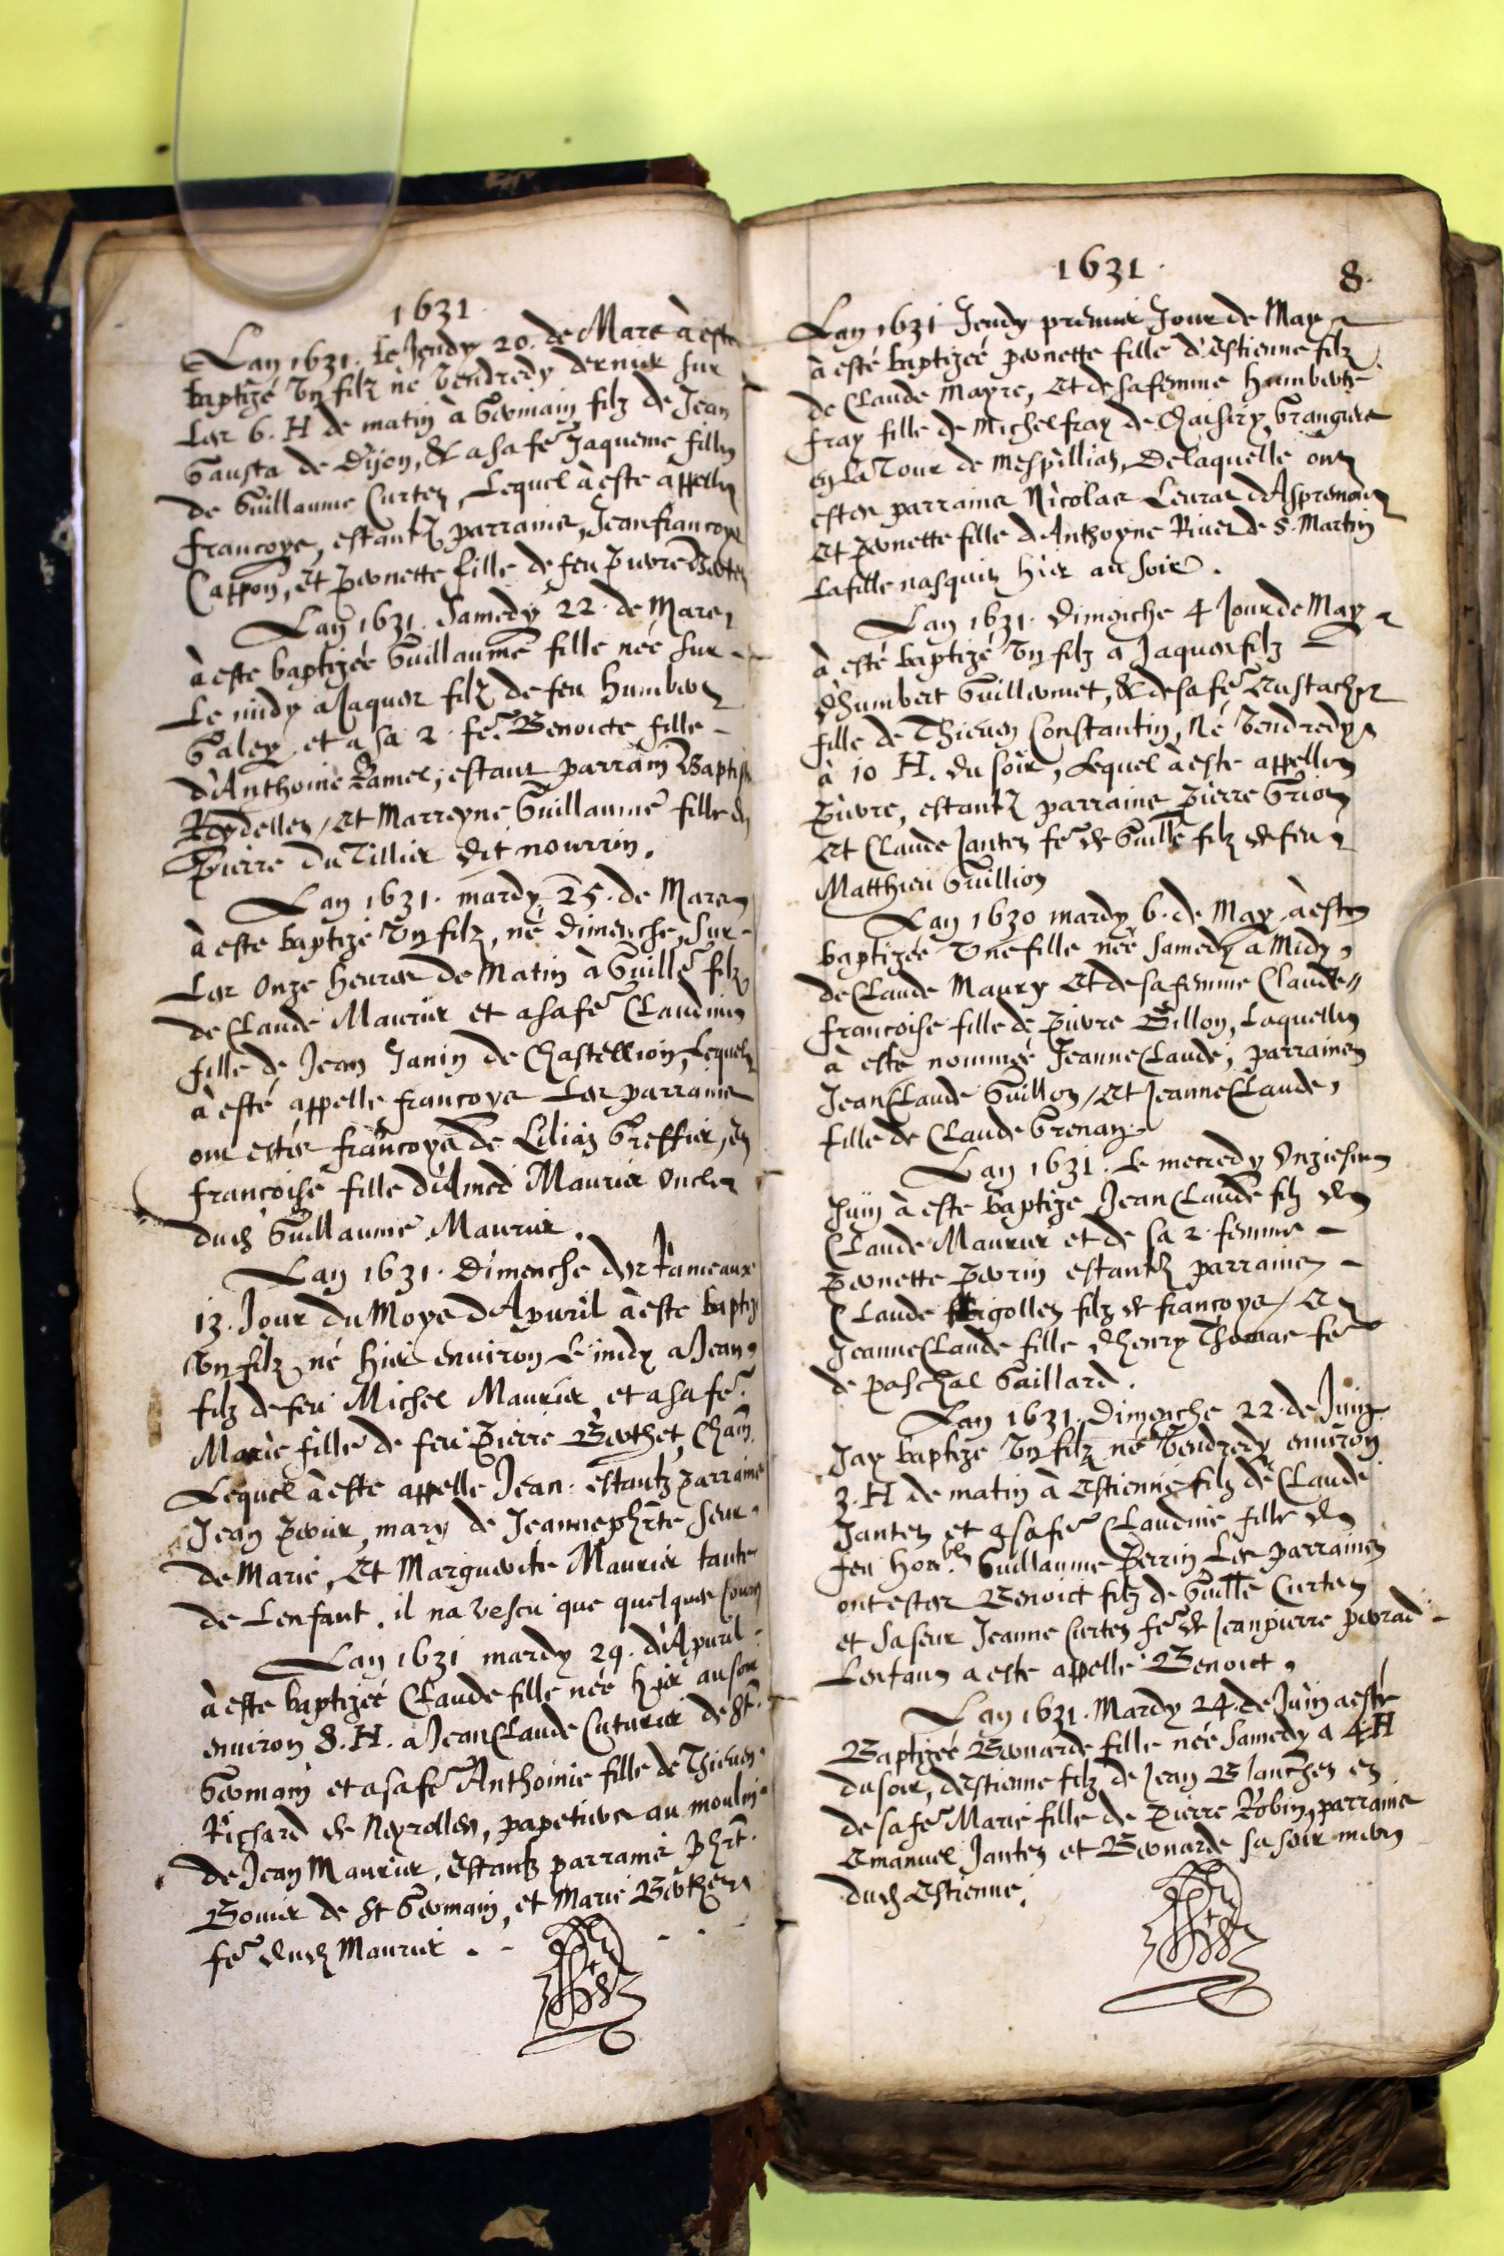 1631.
Lan 1631. Le Jeudy 20. de Mars à este
baptizé Un filz né Vendredy dernier sur
Les 6. H de matin à Germain filz de Jean
Gausta de Dijon, & a sa fe Jaqueme fille
de Guillaume Curtet, Lequel à este appelle
francoys, estantz parrains, Jeanfrancoys
Cappon, et Pernette fille de feu Pierre
Lan 1631. Samedy 22. de Mars
à este baptizée Guillaume fille née sur
Le midy a Jaques filz de feu Humbert
Galey et a sa 2. fe Benoicte fille
d'Anthoine Ramel, estant parrain Baptiste
Rydellet, et Marreyne Guillaume fille de
Pierre du Tillier dit nourrin.
Lan 1631. mardy 25. de Mars
à este baptizé Un filz, né Dimenche, sur
Les Onze heures de Matin à Guille filz
de Claude Maurier et a sa fe Claudine
fille de Jean Janin de Chastellion, Lequel
à esté appelle francoys Les parrains
ont estés francoys de Lilias Greffier, et
francoise fille d'Amed Maurier Oncle
dud Guillaume Maurier.
Lan 1631. Dimenche des Rameaux
13. Jour du Moys d'Apuril à este baptizé
Un filz né hier environ Le midy a Jean
filz de feu Michel Maurier, et a sa fe
Marie fille de feu Pierre Berthet,
Lequel à este appelle Jean. estantz parrains
Jean Perier, mary de Jeanne seur
de Marie, Et Marguerite Maurier tante
de Lenfant. il na vescu que quelques jours
Lan 1631 mardy 29. d'Apuril
à este baptizée Claude fille née hier au soir
environ 8. H. a JeanClaude Cuturier de St
Germain et a sa fe Anthoinie fille de Thieven
Richard de Neyrolles, papetiers au moulin
de Jean Maurier, Estantz parrains
Bouier de St Germain, et Marie
fe dud Maurier.
1631.
8.
Lan 1631 Jeudy premier Jour de May
à esté baptizée pernette fille d'Estienne filz
de Claude Mayre, Et de sa femme Humberte
fray fille de Michel fray de Chaisiry, Grangiers
en La Tour de Mespillias, De laquelle ont
estes parrains Nicolas Leuras d'Aspremont
Et Pernette fille d'Anthoyne River de S. Martin
La fille nasquit hier au soir.
Lan 1631. Dimenche 4 Jour de May
à esté baptizé Un filz a Jaques filz
d'humbert Guillermet, & de sa fe Eustache
fille de Thieven Constantin, Né Vendredy
à 10 H. du soir, Lequel à este appelle
Pierre, estantz parrains Pierre Griot
Et Claude Jantet fe de Guille filz de feu
Matthieu Guillion
Lan 1630 mardy 6. de May à este
baptizée Une fille née samedy a Midy,
de Claude Maury Et de sa femme Claude
francoise fille de Pierre Billon, Laquelle
à este nommée JeanneClaude, parrains
JeanClaude Guillon, Et JeanneClaude,
fille de Claude Grenaz.
Lan 1631. Le mecredy Unziesme
Juin à este baptize JeanClaude filz de
Claude Maurier et de sa 2. femme
pernette perrin estantz parrains
Claude Rigollet filz de francoys, Et
JeanneClaude fille d'henry Thomas fe
de paschal Gaillard.
Lan 1631. Dimenche 22. de Juin
Jay baptizé Un filz né Vendredy environ
3. H de matin à Estienne filz de Claude
Jantet et a sa fe Claudine fille de
feu Honble Guillaume Perrin, Les parrains
ont estes Benoict filz de Guille Curtet
et sa seur Jeanne Curtet fe de Jeanpierre perrad
Lenfant a este appelle Benoict,
Lan 1631. Mardy 24. de Juin a este
Baptizée Bernarde fille née samedy a 4 H
du soir, d'Estienne filz de Jean Blanchet et
de sa fe Marie fille de Pierre Robin, parrains
Emanuel Jantet et Bernarde sa soir
dud Estienne.